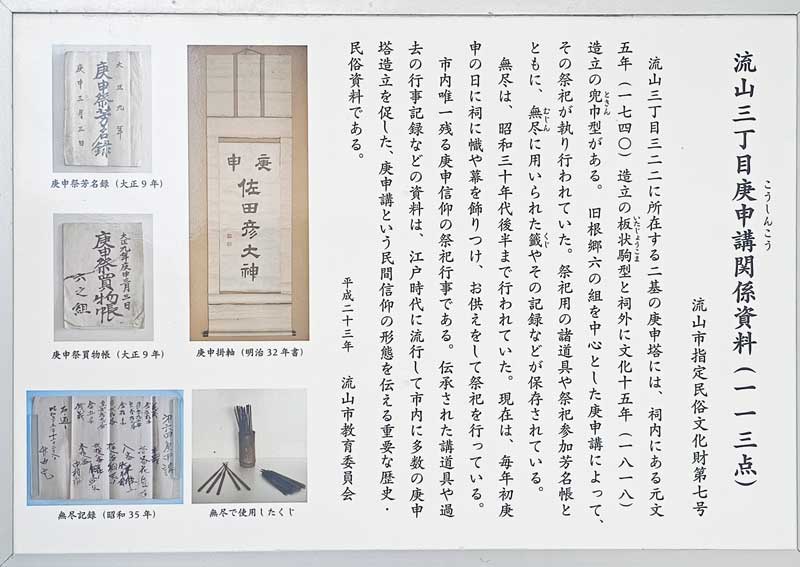 流山三丁目庚申講関係資料(一一三点)
こうしんこう
流山市指定民俗文化財第七号
流山三丁目三二二に所在する二基の庚申塔には、祠内にある元文
五年(一七四〇)造立の板状駒型と祠外に文化十五年(一八一八)
いたじょうこま
造立の兜巾型がある。旧根郷六の組を中心とした庚申講によって、
ときん
その祭祀が執り行われていた。祭祀用の諸道具や祭祀参加芳名帳と
ともに、無尽に用いられた籤やその記録などが保存されている。
むじん
くじ
無尽は、昭和三十年代後半まで行われていた。現在は、毎年初庚
申の日に祠に幟や幕を飾りつけ、お供えをして祭祀を行っている。
市内唯一残る庚申信仰の祭祀行事である。伝承された講道具や過
去の行事記録などの資料は、江戸時代に流行して市内に多数の庚申
塔造立を促した、庚申講という民間信仰の形態を伝える重要な歴史・
民俗資料である。
平成二十三年 流山市教育委員会
庚申
佐田彦大神
庚申掛軸(明治32年書)
大正九年
庚申祭芳名録
庚申三月二日
庚申祭芳名録(大正9年)
大正九年庚申三月二日
庚申祭買物帳
六之組
庚申祭買物帳(大正9年)
無尽記録(昭和35年)
無尽で使用したくじ